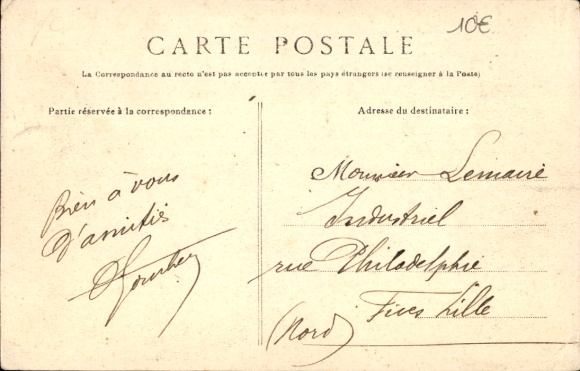 10€
CARTE POSTALE
La Correspondance au recto n'est pas acceptée par tous les pays étrangers (se renseigner à la Poste)
Partie réservée à la correspondance :
Bien à vous
D'amitiés
Adresse du destinataire :
Monsieur Lemaire
Industriel
rue Philadelphie
Fives Lille
(Nord)